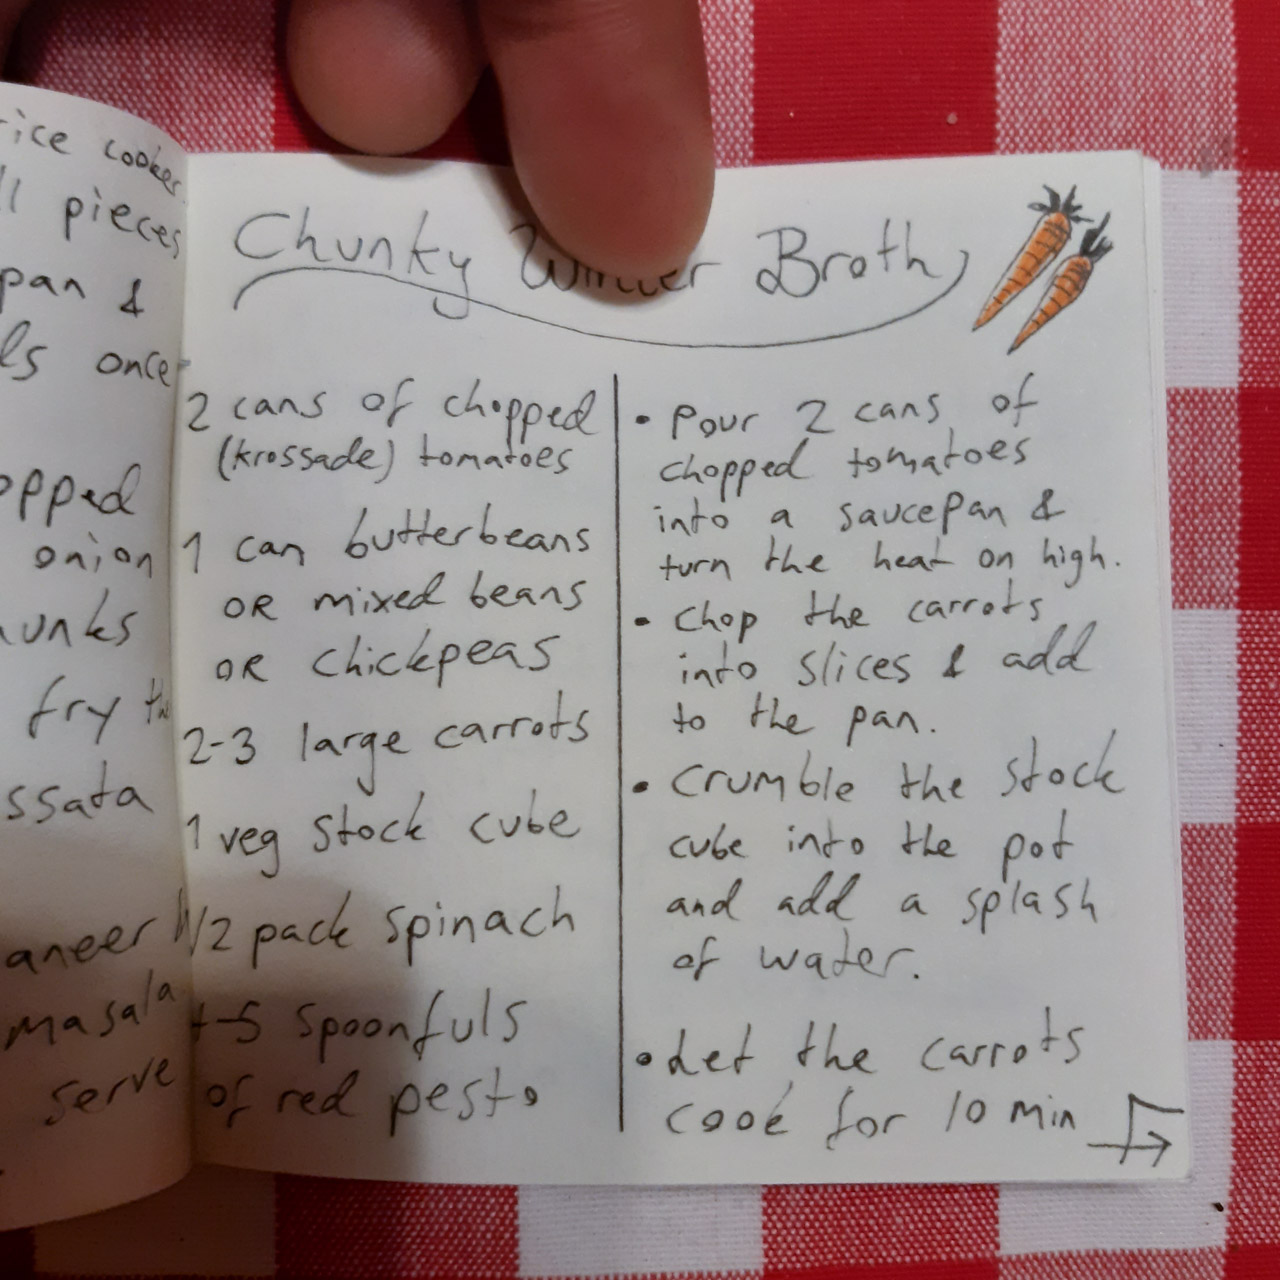 rice cooker
pieces
pan &
once
onion
fry
serve
Chunky Winter Broth
2 cans of chopped
(krossade) tomatoes
1 can butterbeans
OR mixed beans
OR chickpeas
2-3 large carrots
1 veg stock cube
1/2 pack spinach
4-5 spoonfuls
of red pesto
• Pour 2 cans of
chopped tomatoes
into a saucepan &
turn the heat on high.
• Chop the carrots
into slices & add
to the pan.
• Crumble the stock
cube into the pot
and add a splash
of water.
• Let the carrots
cook for 10 min